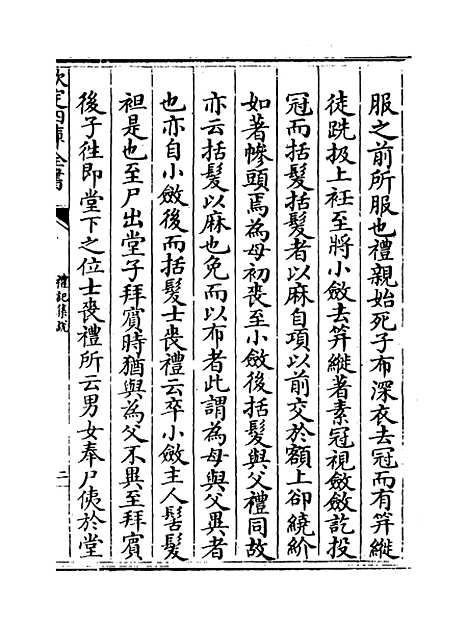 服之前所服也禮親始死子布深衣去冠而有笄縰
徒跣扱上衽至將小斂去笄縰著素冠視斂斂訖投
冠而括髮括髮者以麻自項以前交於額上卻繞紒
如著幓頭焉為母初喪至小斂後括髮與父禮同故
亦云括髮以麻也免而以布者此謂為母與父異者
也亦自小斂後而括髮士喪禮云卒小斂主人髻髮
袒是也至尸出堂子拜賓時猶與為父不異至拜賓
後子徃即堂下之位士喪禮所云男女奉尸侇於堂
欽定四庫全書
禮記集說
二